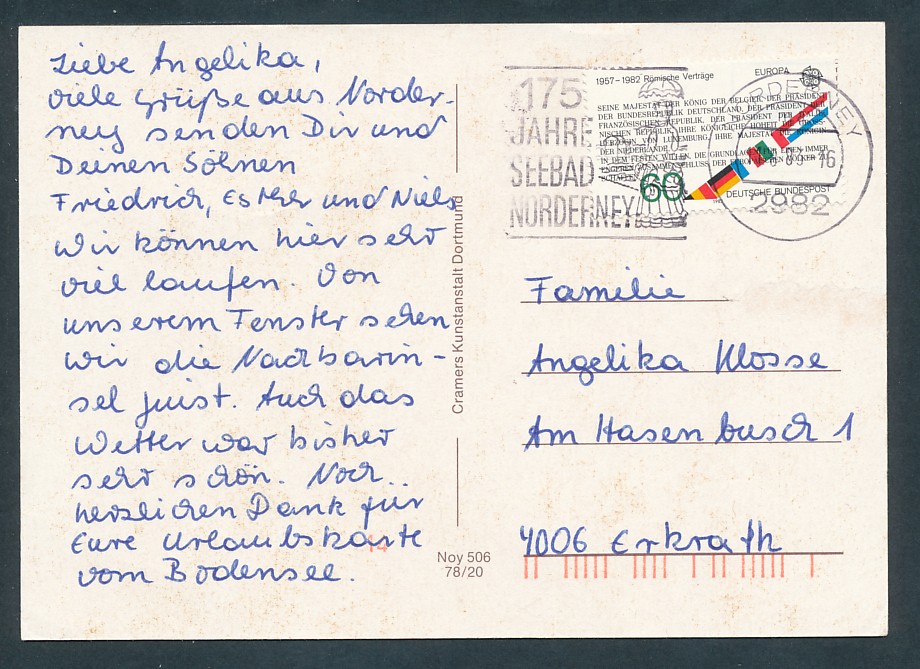 Liebe Angelika,
viele Grüße aus Norder-
ney senden Dir und
Deinen Söhnen
Friedrich, Esther und Niels
Wir können hier sehr
viel laufen. Von
unserem Fenster sehen
wir die Nachbarin-
sel Juist. Auch das
Wetter war bisher
sehr schön. Noch..
herzlichen Dank für
Eure Urlaubskarte
vom Bodensee.
Cramers Kunstanstalt Dortmund
Noy 506
78/20
175
JAHRE
SEEBAD
NORDERNEY
1957–1982 Römische Verträge
EUROPA
SEINE MAJESTÄT DER KÖNIG DER BELGIER, DER PRÄSIDENT
DER BUNDESREPUBLIK DEUTSCHLAND, DER PRÄSIDENT DER
FRANZÖSISCHEN REPUBLIK, DER PRÄSIDENT DER ITALIE-
NISCHEN REPUBLIK, IHRE KÖNIGLICHE HOHEIT DIE GROSS-
HERZOGIN VON LUXEMBURG, IHRE MAJESTÄT DIE KÖNIGIN
DER NIEDERLANDE
IN DEM FESTEN WILLEN, DIE GRUNDLAGEN FÜR EINEN IMMER
ENGEREN ZUSAMMENSCHLUSS DER EUROPÄISCHEN VÖLKER ZU
SCHAFFEN
60
DEUTSCHE BUNDESPOST
NORDERNEY
2982
Familie
Angelika Klosse
Am Hasenbusch 1
4006 Erkrath
14